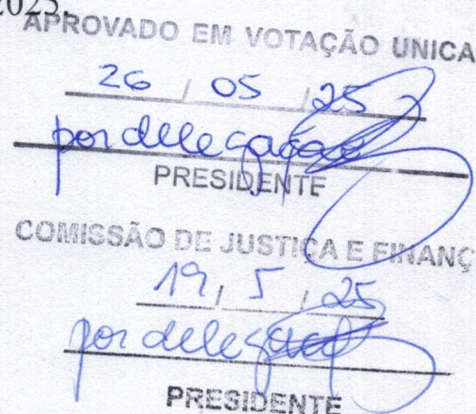 2025.
APROVADO EM VOTAÇÃO UNICA
26 / 05 / 25
por delegação
PRESIDENTE
COMISSÃO DE JUSTIÇA E FINANÇ
19 / 5 / 25
por delegação
PRESIDENTE